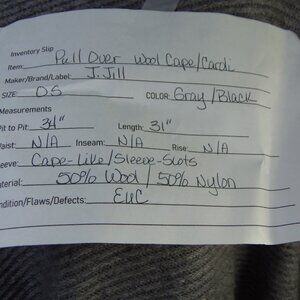 Inventory Slip
Item: Pull Over Wool Cape/Cardi
Maker/Brand/Label: J.Jill
SIZE: OS COLOR: Gray/Black
Measurements
Pit to Pit: 34" Length: 31"
Waist: N/A Inseam: N/A Rise: N/A
Sleeve: Cape-Like/Sleeve-Slots
Material: 50% Wool / 50% Nylon
Condition/Flaws/Defects: EUC